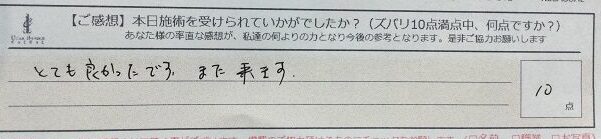 【ご感想】本日施術を受けられていかがでしたか？（ズバリ10点満点中、何点ですか？）
あなた様の率直な感想が、私達の何よりの力となり今後の参考となります。是非ご協力お願いします
とても良かったです。また来ます。
10
点